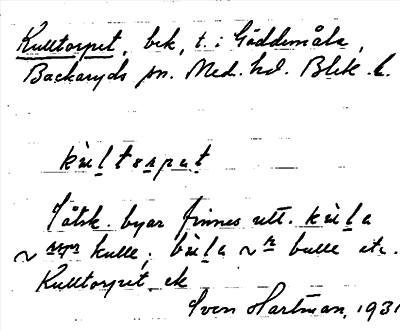 Kulltorpet, bek, t. i Göddemåla,
Backaryds sn. Med. hd. Blek. l.
kùl̲to̲rpet̲
I åtsk. byar finnes utt. kùl̲a
~ kulle, bùl̲a ~ bulle etc.
Kulltorpet, ek
Sven Hartman, 1931